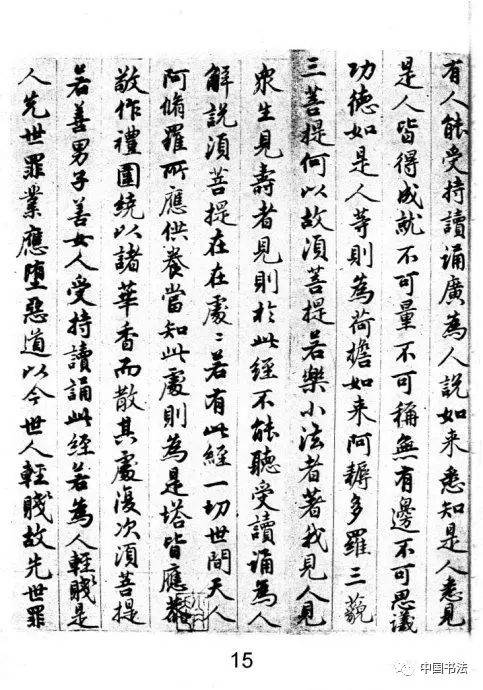 有人能受持讀誦廣為人説如来悉知是人悉見
是人皆得成就不可量不可稱無有邊不可思議
功德如是人等則為荷擔如来阿耨多羅三藐
三菩提何以故湏菩提若樂小法者著我見人見
衆生見壽者見則於此經不能聽受讀誦為人
解説湏菩提在在處〻若有此經一切世間天人
阿脩羅所應供養當知此處則為是塔皆應恭
敬作禮圍繞以諸華香而散其處復次湏菩提
若善男子善女人受持讀誦此經若為人輕賤是
人先世罪業應堕惡道以今世人輕賤故先世罪
15
中国书法